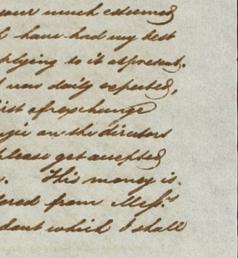 your much esteemed
I have had my best
plying to it at present,
was daily expected,
list of exchange
on the directors
please get accepted
This money is
ered from Mess.rs
dant which I shall